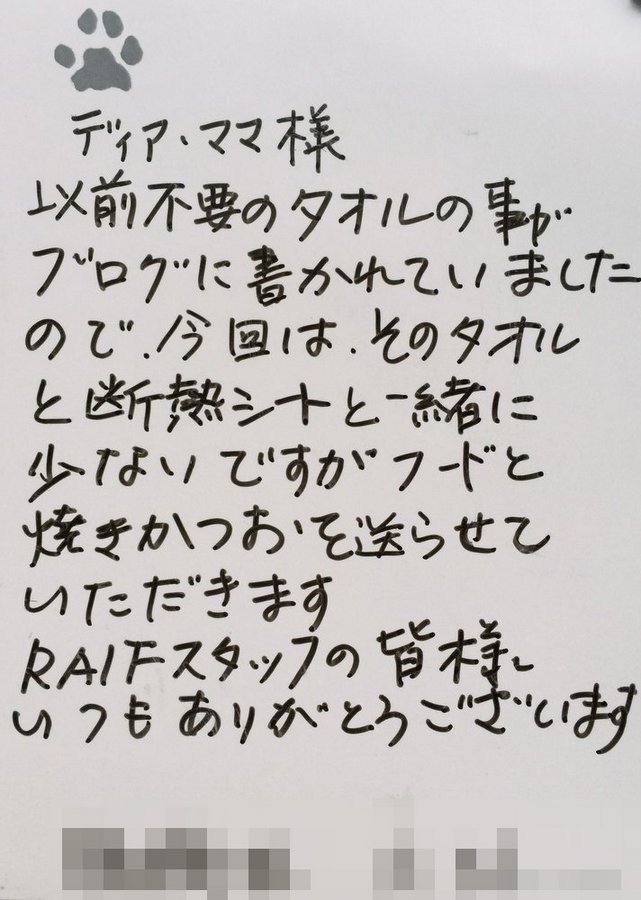 ディア・ママ様
以前不要のタオルの事が
ブログに書かれていました
ので、今回は、そのタオル
と断熱シートと一緒に
少ないですがフードと
焼きかつおを送らせて
いただきます
RAIFスタッフの皆様
いつもありがとうございます